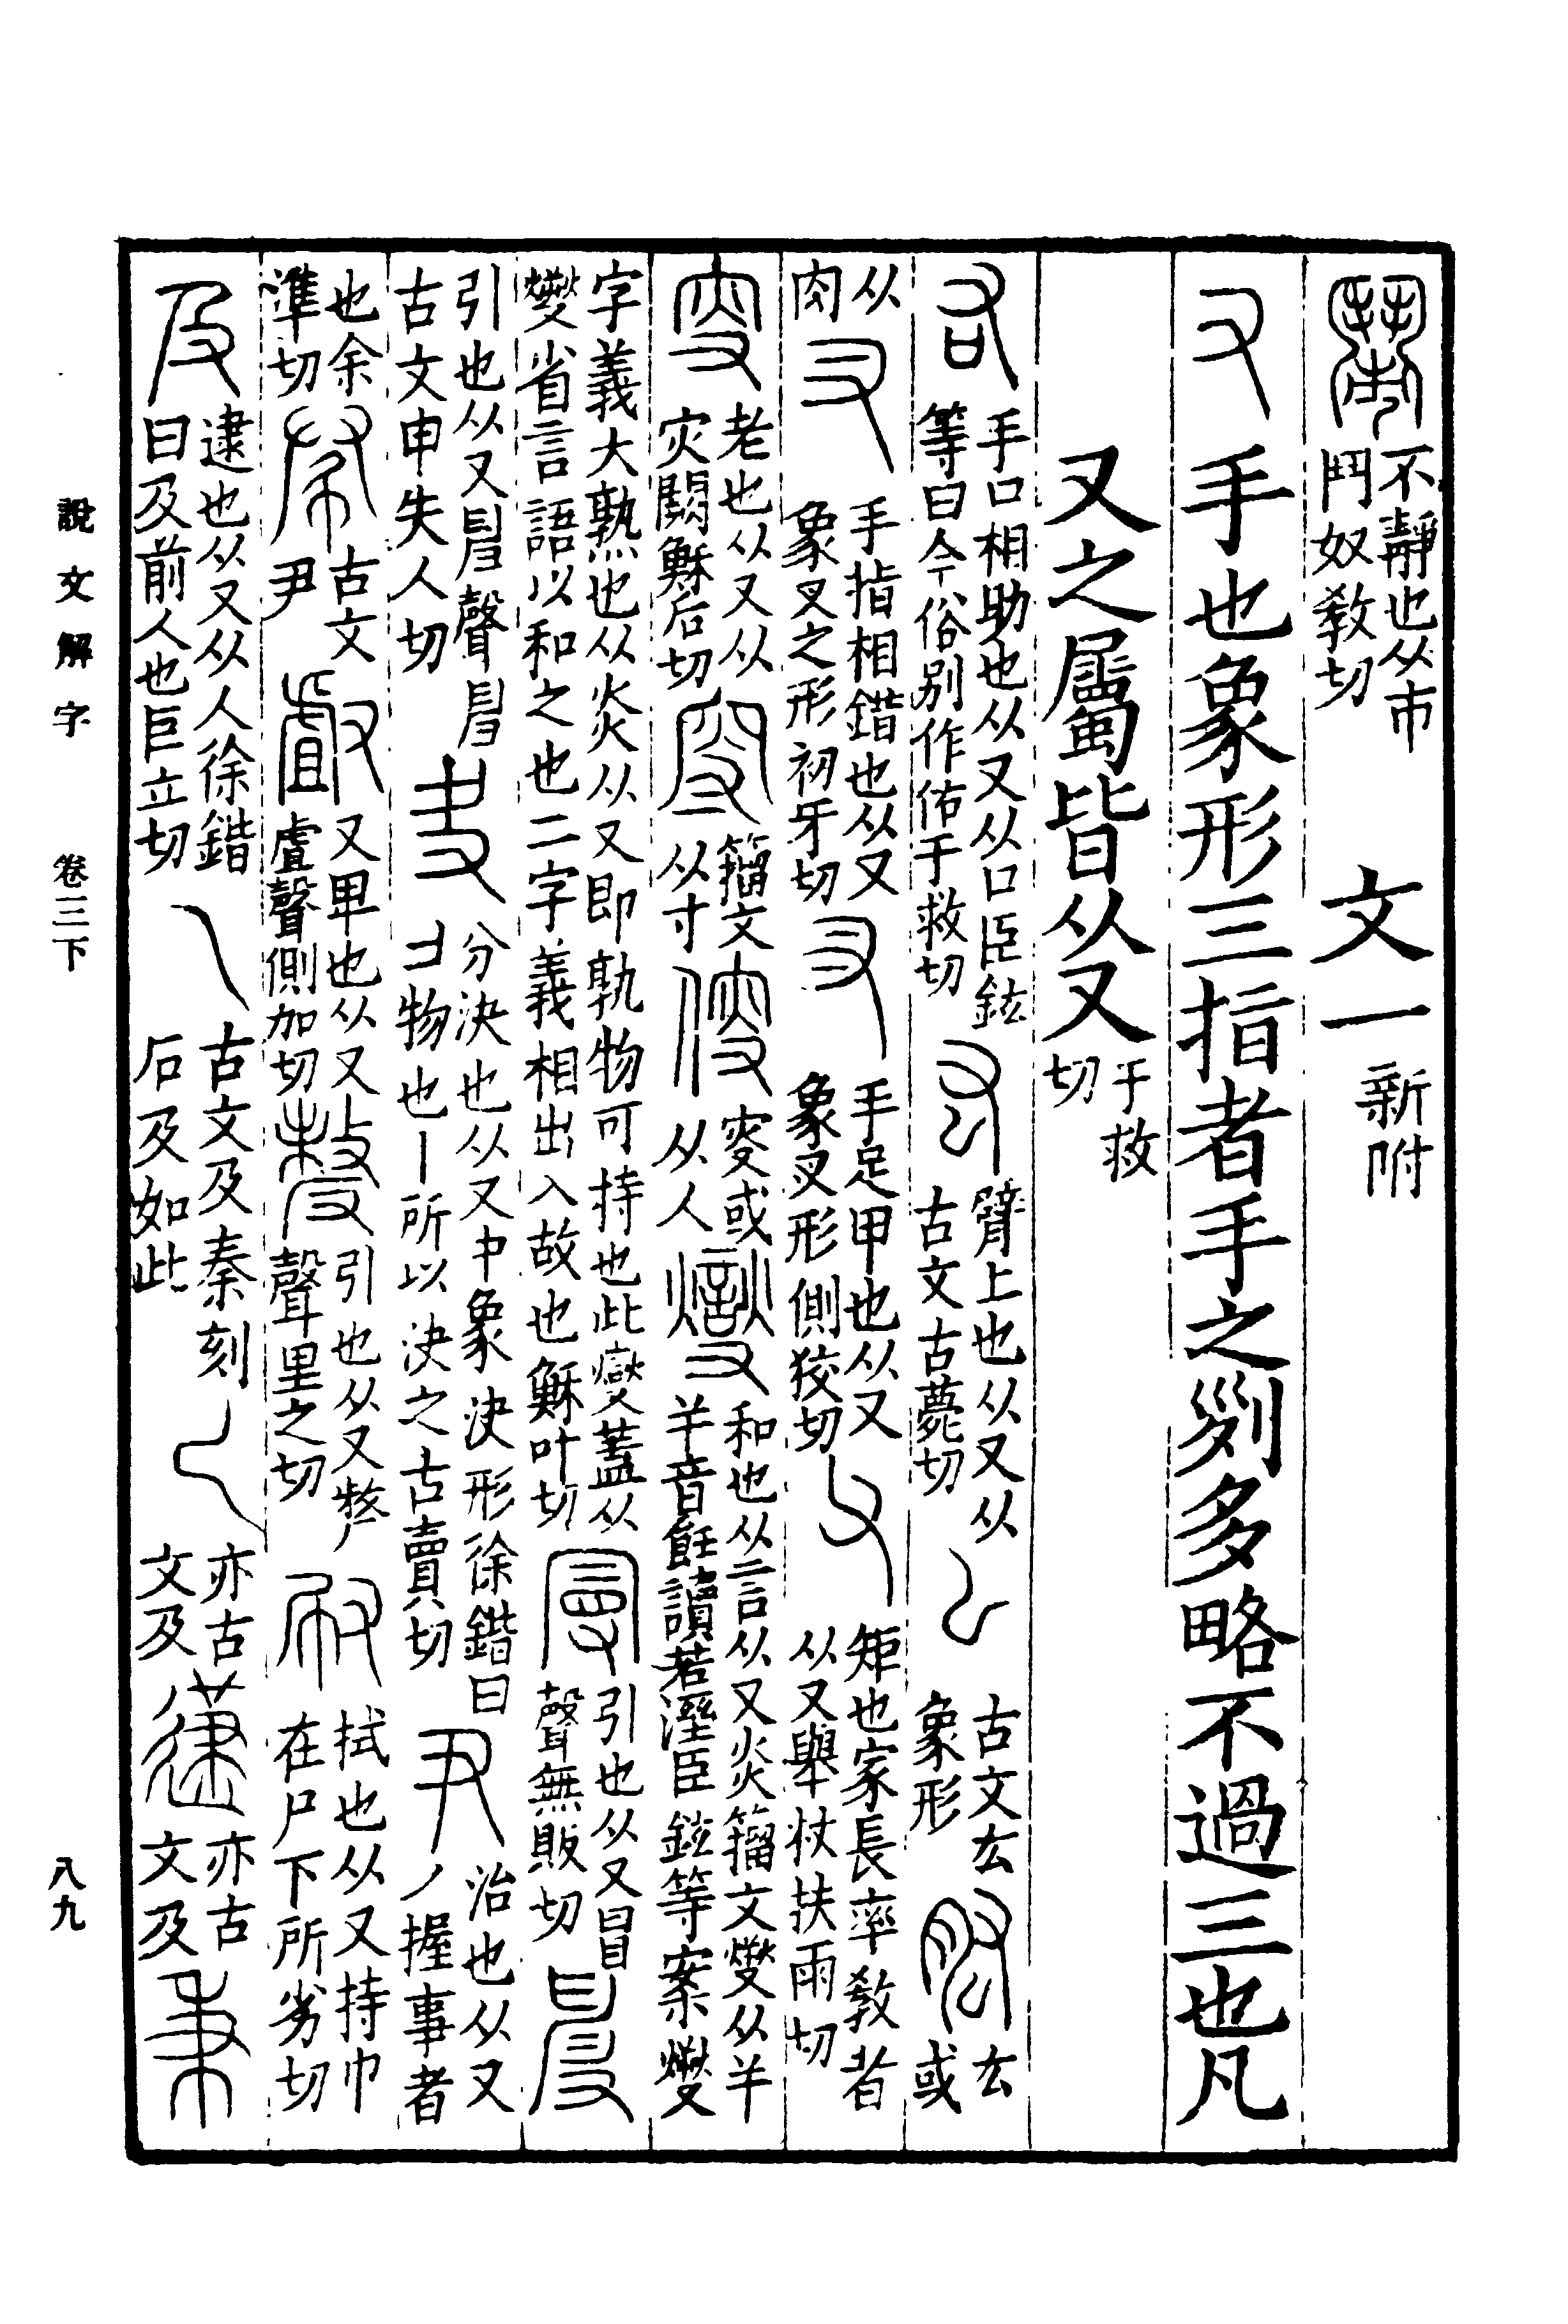 鬧不靜也从市鬥奴敎切　文一新附
又手也象形三指者手之𠛱多略不過三也凡
又之屬皆从又于救切
右手口相助也从又从口臣鉉等曰今俗別作佑于救切厷臂上也从又从古文古薨切𠃋古文厷象形肱厷或
从肉叉手指相錯也从又象叉之形初牙切㕚手足甲也从又象叉形側狡切父矩也家長率敎者从又舉杖扶雨切
叜老也从又从灾闕穌后切𡬂籒文从寸傁叜或从人燮和也从言从又炎籒文燮从𢆉𢆉音飪讀若溼臣鉉等案燮
字義大孰也从炎从又即孰物可持也此燮蓋从燮省言語以和之也二字義相出入故也穌叶切曼引也从又冒聲無販切𠭙
引也从又𦥔聲𦥔古文申失人切夬分決也从又𠁧象決形徐鍇曰コ物也丨所以決之古賣切尹治也从又丿握事者
也余準切𢁪古文尹䖒又卑也从又虘聲側加切𠭰引也从又𠩺聲里之切㕞拭也从又持巾在尸下所劣切
及逮也从又从人徐鍇曰及前人也巨立切乁古文及秦刻石及如此亦古文及亦古文及秉
說文解字　卷三下　八九